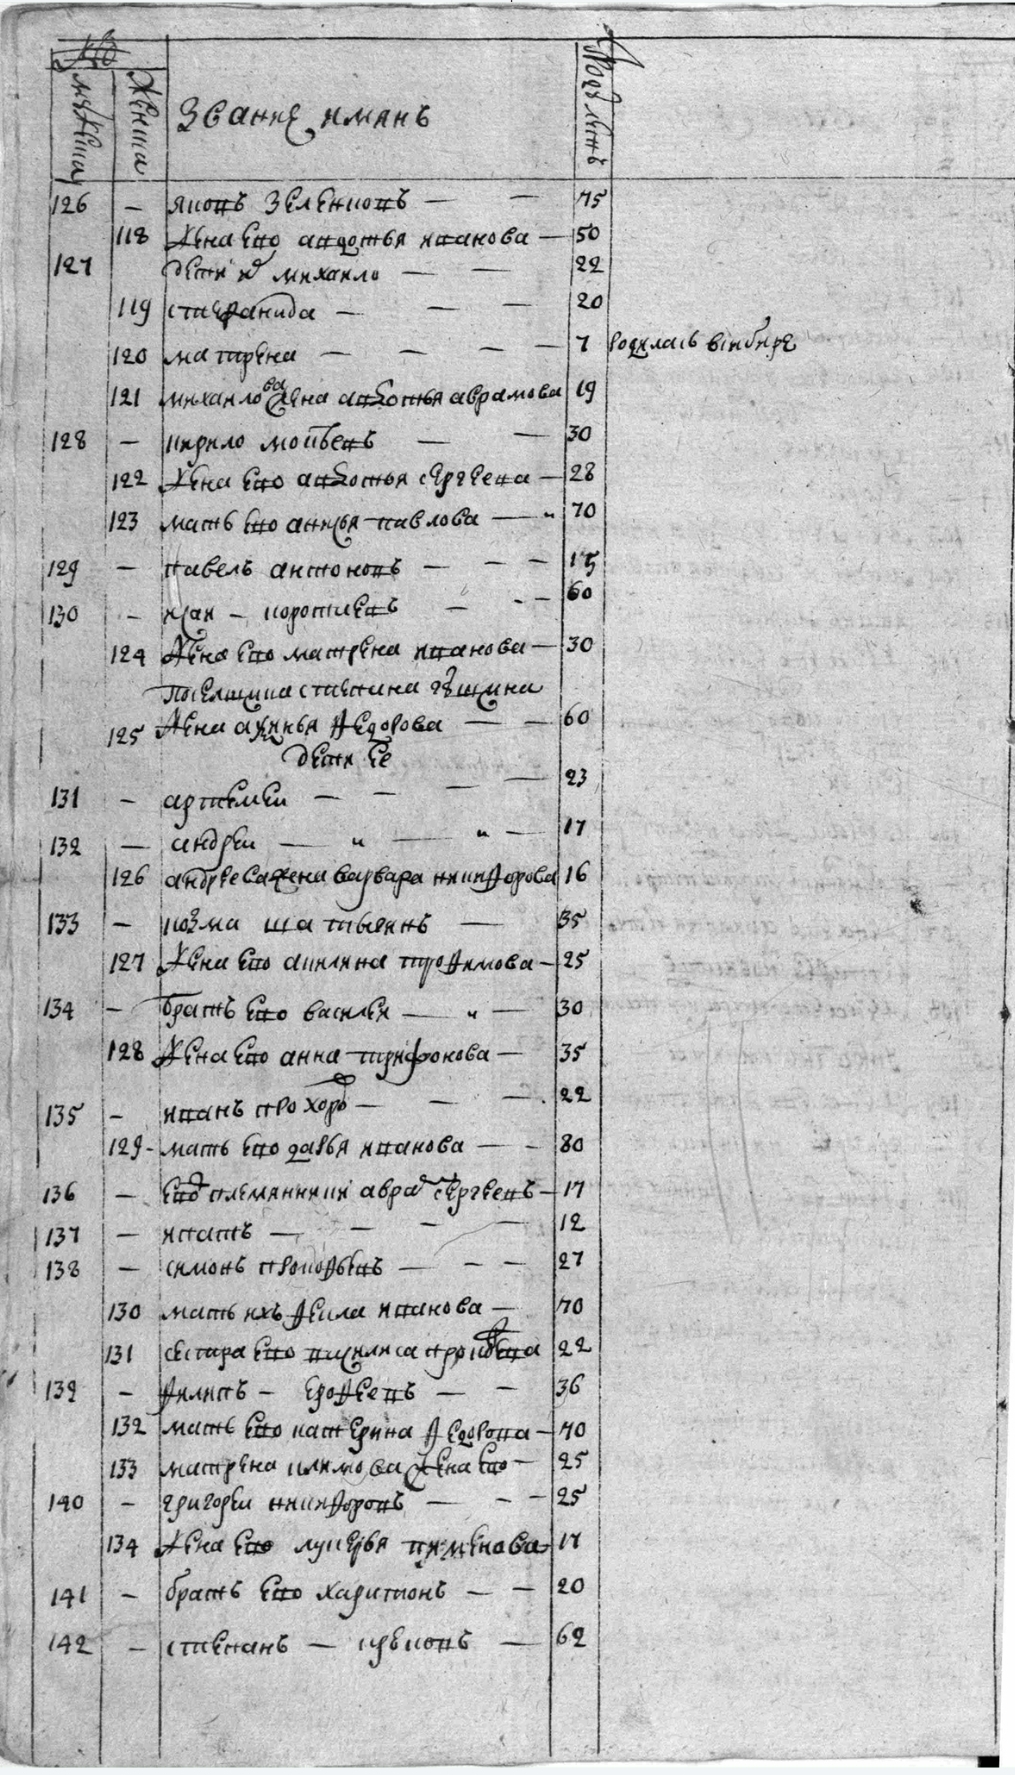 Число
мужеска
женска
Звание имянъ
Года летъ
126 — яковъ зеленковъ — — 75
118 жена ево авдотья иванова — 50
127 дети их михаило — — 22
119 степанида — — — 20
120 матрена — — — — 7 родилась
121 михаилова жена авдотья аврамова 19
128 — кирило — — 30
122 жена ево авдотья сергеева — 28
123 мать ево павлова — „ 70
129 — павелъ антоновъ — — — 15
130 — — — — 60
124 жена ево матрена иванова — 30
степана
125 жена аксинья федорова — — 60
дети ее
131 — артемеи — — — — 23
132 — андреи — „ — „ — 17
126 андреева жена варвара никифорова 16
133 — козма — 35
127 жена ево акилина трофимова — 25
134 — братъ ево василеи — „ — 30
128 жена ево анна трифонова — 35
135 — иванъ прохоро — — — 22
129 — мать ево дарья иванова — — 80
136 — ево племянники авра сергеевъ — 17
137 — игнатъ — — — — 12
138 — симонъ прокофьевъ — — — 27
130 мать ихъ фекла иванова — 70
131 сестра ево 22
139 — филипъ — ерофеевъ — — 36
132 мать ево катерина федорова — 70
133 матрена климова жена ево — 25
140 — григореи никифоровъ — — — 25
134 жена ево лукерья пименова — 17
141 — братъ ево харитонъ — — 20
142 — степанъ — — 62